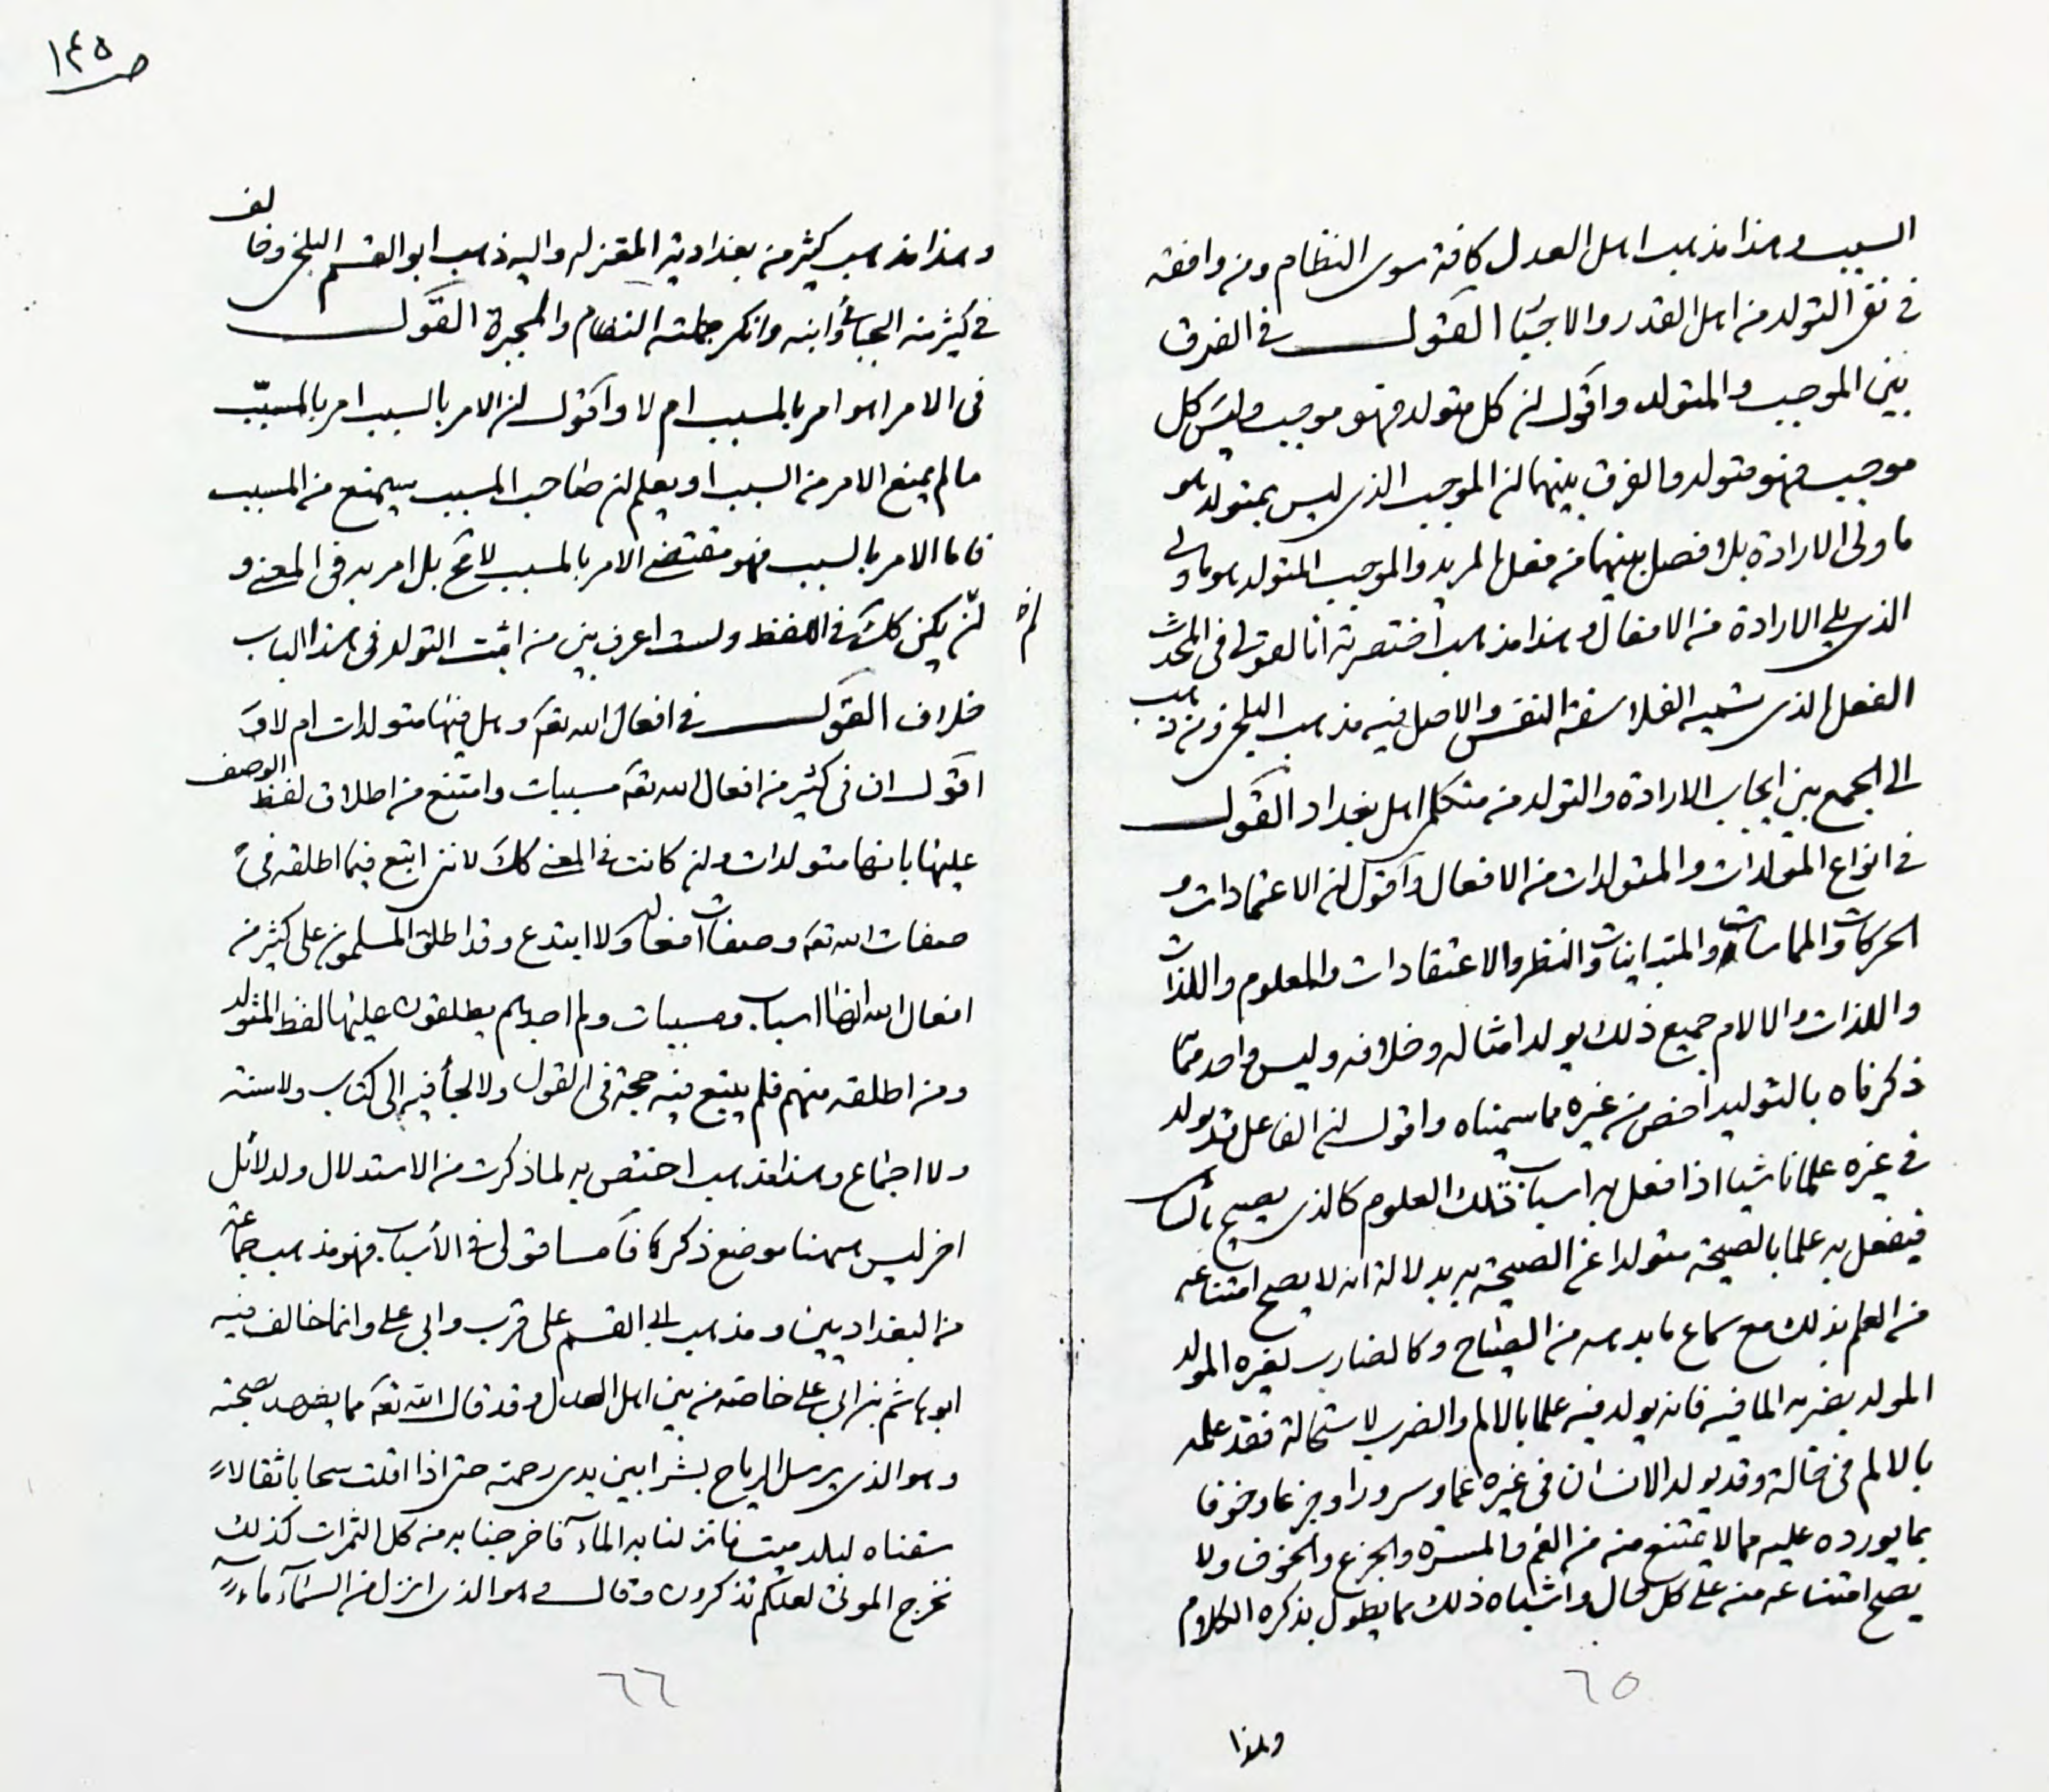 السبب وهذا مذهب اهل العدل كافة سوى النظام ومن وافقه
في نفى التولد من اهل القدر والاجبار القول في الفرق
بين الموجب والمتولد واقول ان كل متولد فهو موجب وليس كل
موجب فهو متولد والفرق بينهما ان الموجب الذى ليس بمتولد هو
ما ولى الارادة بلا فصل بينهما من فعل المريد والموجب المتولد هو ما ولى
الذى يلى الارادة من الافعال وهذا مذهب اختصرته انا لقولى فى المحدث
الفعل الذى تسميه الفلاسفة النفس والاصل فيه مذهب البلخى ومن ذهب
الى الجمع بين ايجاب الارادة والتولد من متكلمى اهل بغداد القول
في انواع المولدات والمتولدات من الافعال واقول ان الاعتمادات و
الحركات والمماسات والمتباينات والنظر والاعتقادات والعلوم واللذات
واللذات والالام جميع ذلك يولد امثاله وخلافه وليس واحد مما
ذكرناه بالتوليد اخص من غيره مما سميناه واقول ان الفاعل قد يولد
في غيره علما ناشيا اذا فعل به اسباب تلك العلوم كالذى يصيح بالساهى
فيفعل به علما بالصيحة متولدا عن الصيحة به بدلالة انه لا يصح امتناعه
من العلم بذلك مع سماع ما بدهه من الصياح وكالضارب لغيره المولد
المولد بضربه الما فيه فانه يولد فيه علما بالالم والضرب لاستحالة فقد علمه
بالالم فى حالة وقد يولد الانسان فى غيره غما وسرورا وجزعا وخوفا
بما يورده عليه مما لا يمتنع منه من الغم والمسرة والجزع والخوف ولا
يصح امتناعه منه على كل حال واشباه ذلك مما يطول بذكره الكلام
٦٥
وهذا
ص ١٤٥
وهذا مذهب كثير من بغدادية المعتزله واليه ذهب ابو القسم البلخى وخالف
في كثير منه الجبائى وابنه وانكر جملته النظام والمجبرة القول
فى الامر اهو امر بالمسبب ام لا واقول ان الامر بالسبب امر بالمسبّب
ما لم يمنع الامر من السبب او يعلم ان صاحب المسبب سيمنع من المسبب
فاما الامر بالسبب فهو مقتض الامر بالمسبب لا مح بل امر به فى المعنى و
ان لم يكن كك في اللفظ ولست اعرف بين من اثبت التولد فى هذا الباب
خلاف القول في افعال الله تعه وهل فيها متولدات ام لا و
اقول ان فى كثير من افعال الله تعه مسببات وامتنع من اطلاق لفظ الوصف
عليها بانها متولدات وان كانت في المعنى كك لاننى اتبع فيما اطلقه في
صفات الله تعه وصفات افعاله ولا ابتدع وقد اطلق المسلمون على كثير من
افعال الله انها اسباب ومسببات ولم اجدهم يطلقون عليها لفظ المتولد
ومن اطلقه منهم فلم يتبع فيه حجة فى القول ولا لجأ فيه الى كتاب ولا سنة
ولا اجماع وهذا مذهب اختص به لما ذكرت من الاستدلال ولدلائل
اخر ليس ههنا موضع ذكرها فاما قولى في الأسباب فهو مذهب جماعة
من البغداديين ومذهب ابى القسم على قرب وابى على وانما خالف فيه
ابو هاشم بن ابى على خاصة من بين اهل العدل وقد قال الله تعه مما يشهد بصحته
وهو الذى يرسل الرياح بشرا بين يدى رحمته حتى اذا اقلت سحابا ثقالا
سقناه لبلد ميت فانزلنا به الماء فاخرجنا به من كل الثمرات كذلك
نخرج الموتى لعلكم تذكرون وقال وهو الذى انزل من السماء ماء
٦٦